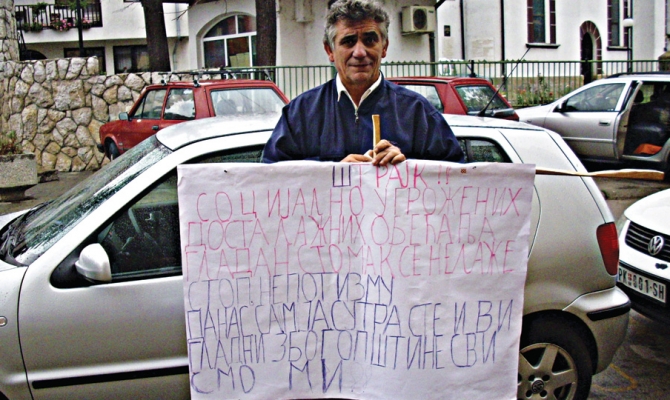 ШТРАЈК
СОЦИЈАЛНО УГРОЖЕНИХ
ДОСТА ЛАЖНИХ ОБЕЋАЊА
ГЛАДАН СТОМАК СЕ НЕ ЛАЖЕ
СТОП НЕПОТИЗМУ
ДАНАС САМ ЈА СУТРА СТЕ И ВИ
ГЛАДНИ ЗБОГ ОПШТИНЕ СВИ
СМО МИ...